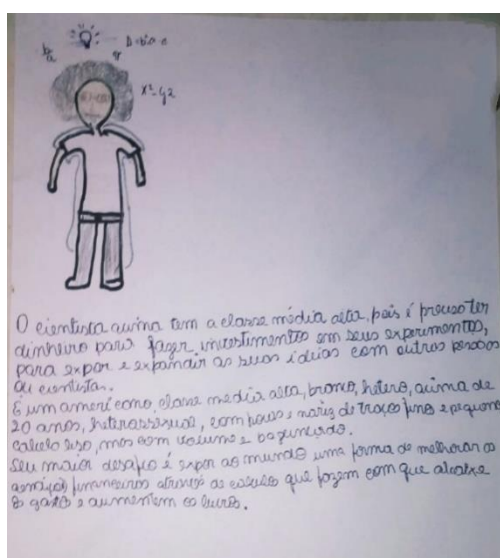 x²-y²
O cientista acima tem a classe média alta, pois é preciso ter
dinheiro para fazer investimentos em seus experimentos,
para expor e expandir as suas ideias com outras pessoas
ou cientistas.
É um americano, classe média alta, branco, hetero, acima de
20 anos, heterossexual, com nariz de traços finos e pequeno
cabelo liso, mas com volume e bagunçado.
Seu maior desafio é expor ao mundo uma forma de melhorar os
financeiros através de calculo que fazem com que
o gasto e aumentem os lucros.